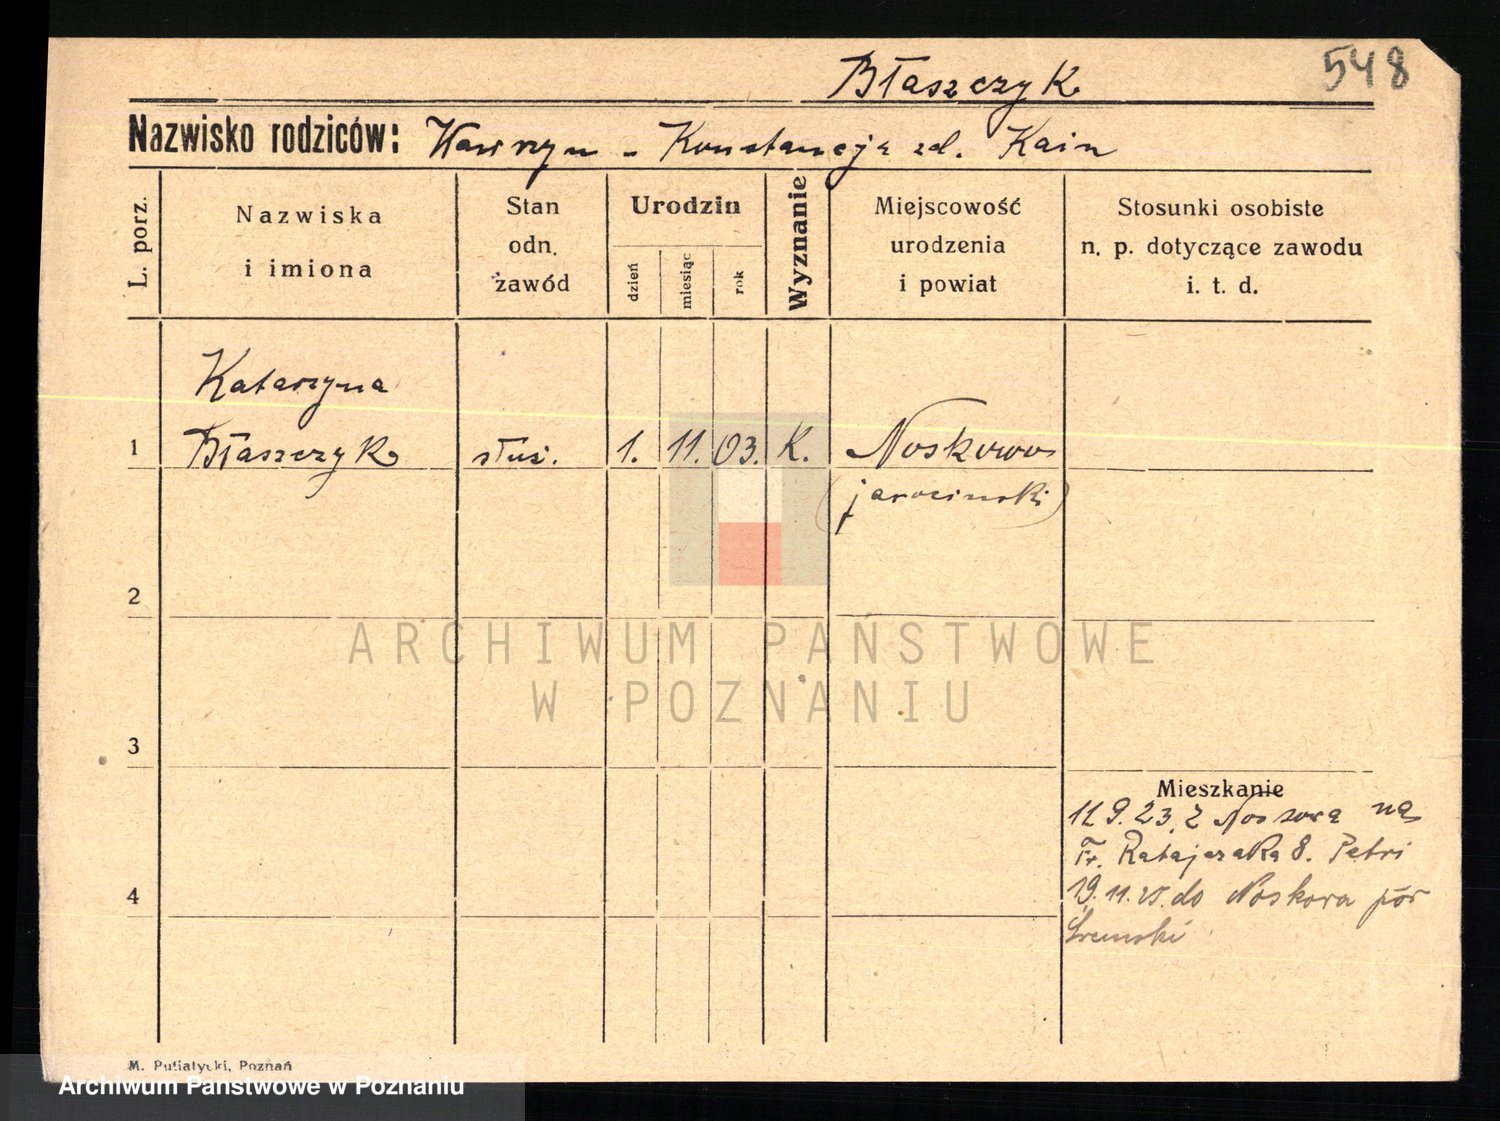 548
Błaszczyk
Nazwisko rodziców: Wawrzyn - Konstancja zd. Kain
L. porz.
Nazwiska
i imiona
Stan
odn.
zawód
Urodzin
dzień
miesiąc
rok
Wyznanie
Miejscowość
urodzenia
i powiat
Stosunki osobiste
n. p. dotyczące zawodu
i. t. d.
Katarzyna
1 Błaszczyk służ. 1. 11. 03. K. Noskowo
(jarocinski)
2
ARCHIWUM PAŃSTWOWE
W POZNANIU
3
Mieszkanie
11 9. 23. z na
Fr. Ratajczaka 8. Petri
4 19. 11. 25. do
Śremski
M. Putiatycki, Poznań
Archiwum Państwowe w Poznaniu